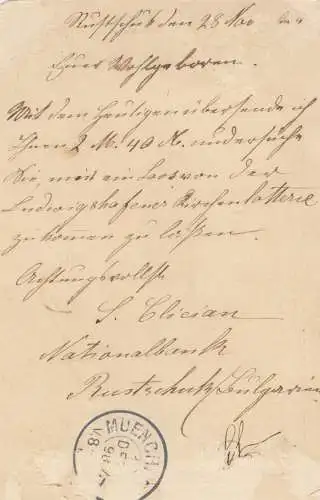 Rustschuk den 28 Nov
Euer Wohlgeboren.
Mit dem Heutigen übersende ich
Ihnen 2 M. 40 und ersuche
Sie, mir ein Los von der
Ludwigshafener Kirchenlotterie
zukommen zu laßen.
Achtungsvollst
S. Clician
Nationalbank
Rustschuk Bulgarien
MUENCH